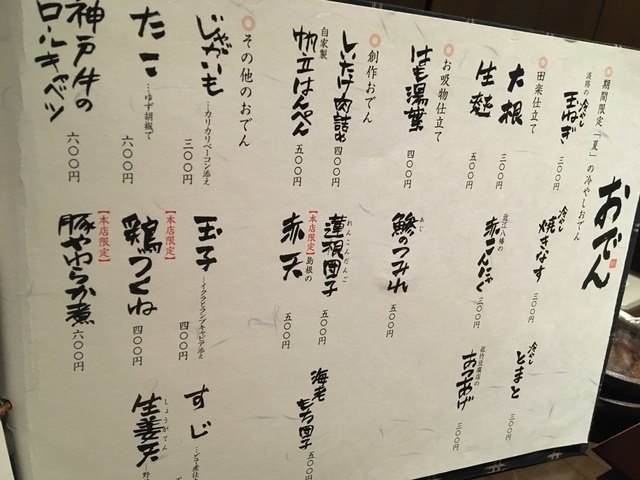 おでん
◎期間限定「夏」の冷やしおでん
淡路の冷やし玉ねぎ 三〇〇円
冷やし焼きなす 三〇〇円
冷やしとまと 三〇〇円
◎田楽仕立て
大根 三〇〇円
生麩 五〇〇円
近江八幡の赤こんにゃく 三〇〇円
佐竹豆腐店のあつあげ 三〇〇円
◎お吸物仕立て
はも湯葉 四〇〇円
鯵のつみれ 五〇〇円
あじ
◎創作おでん
しいたけ肉詰め 四〇〇円
蓮根団子 五〇〇円
れんこんだんご
海老もち団子 五〇〇円
自家製帆立はんぺん 五〇〇円
【本店限定】島根の赤天 五〇〇円
◎その他のおでん
じゃがいも…カリカリベーコン添え 三〇〇円
玉子…イクラとランプキャビア添え 四〇〇円
すじ
たこ…ゆず胡椒で 六〇〇円
【本店限定】鶏つくね 四〇〇円
生姜天
しょうがてん
神戸牛のロールキャベツ 六〇〇円
【本店限定】豚やわらか煮 六〇〇円